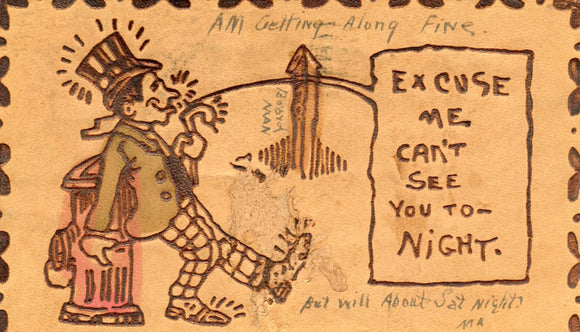 AM Getting Along Fine.
EXCUSE
ME
CAN'T
SEE
YOU TO-
NIGHT.
But will About Sat Night
MA